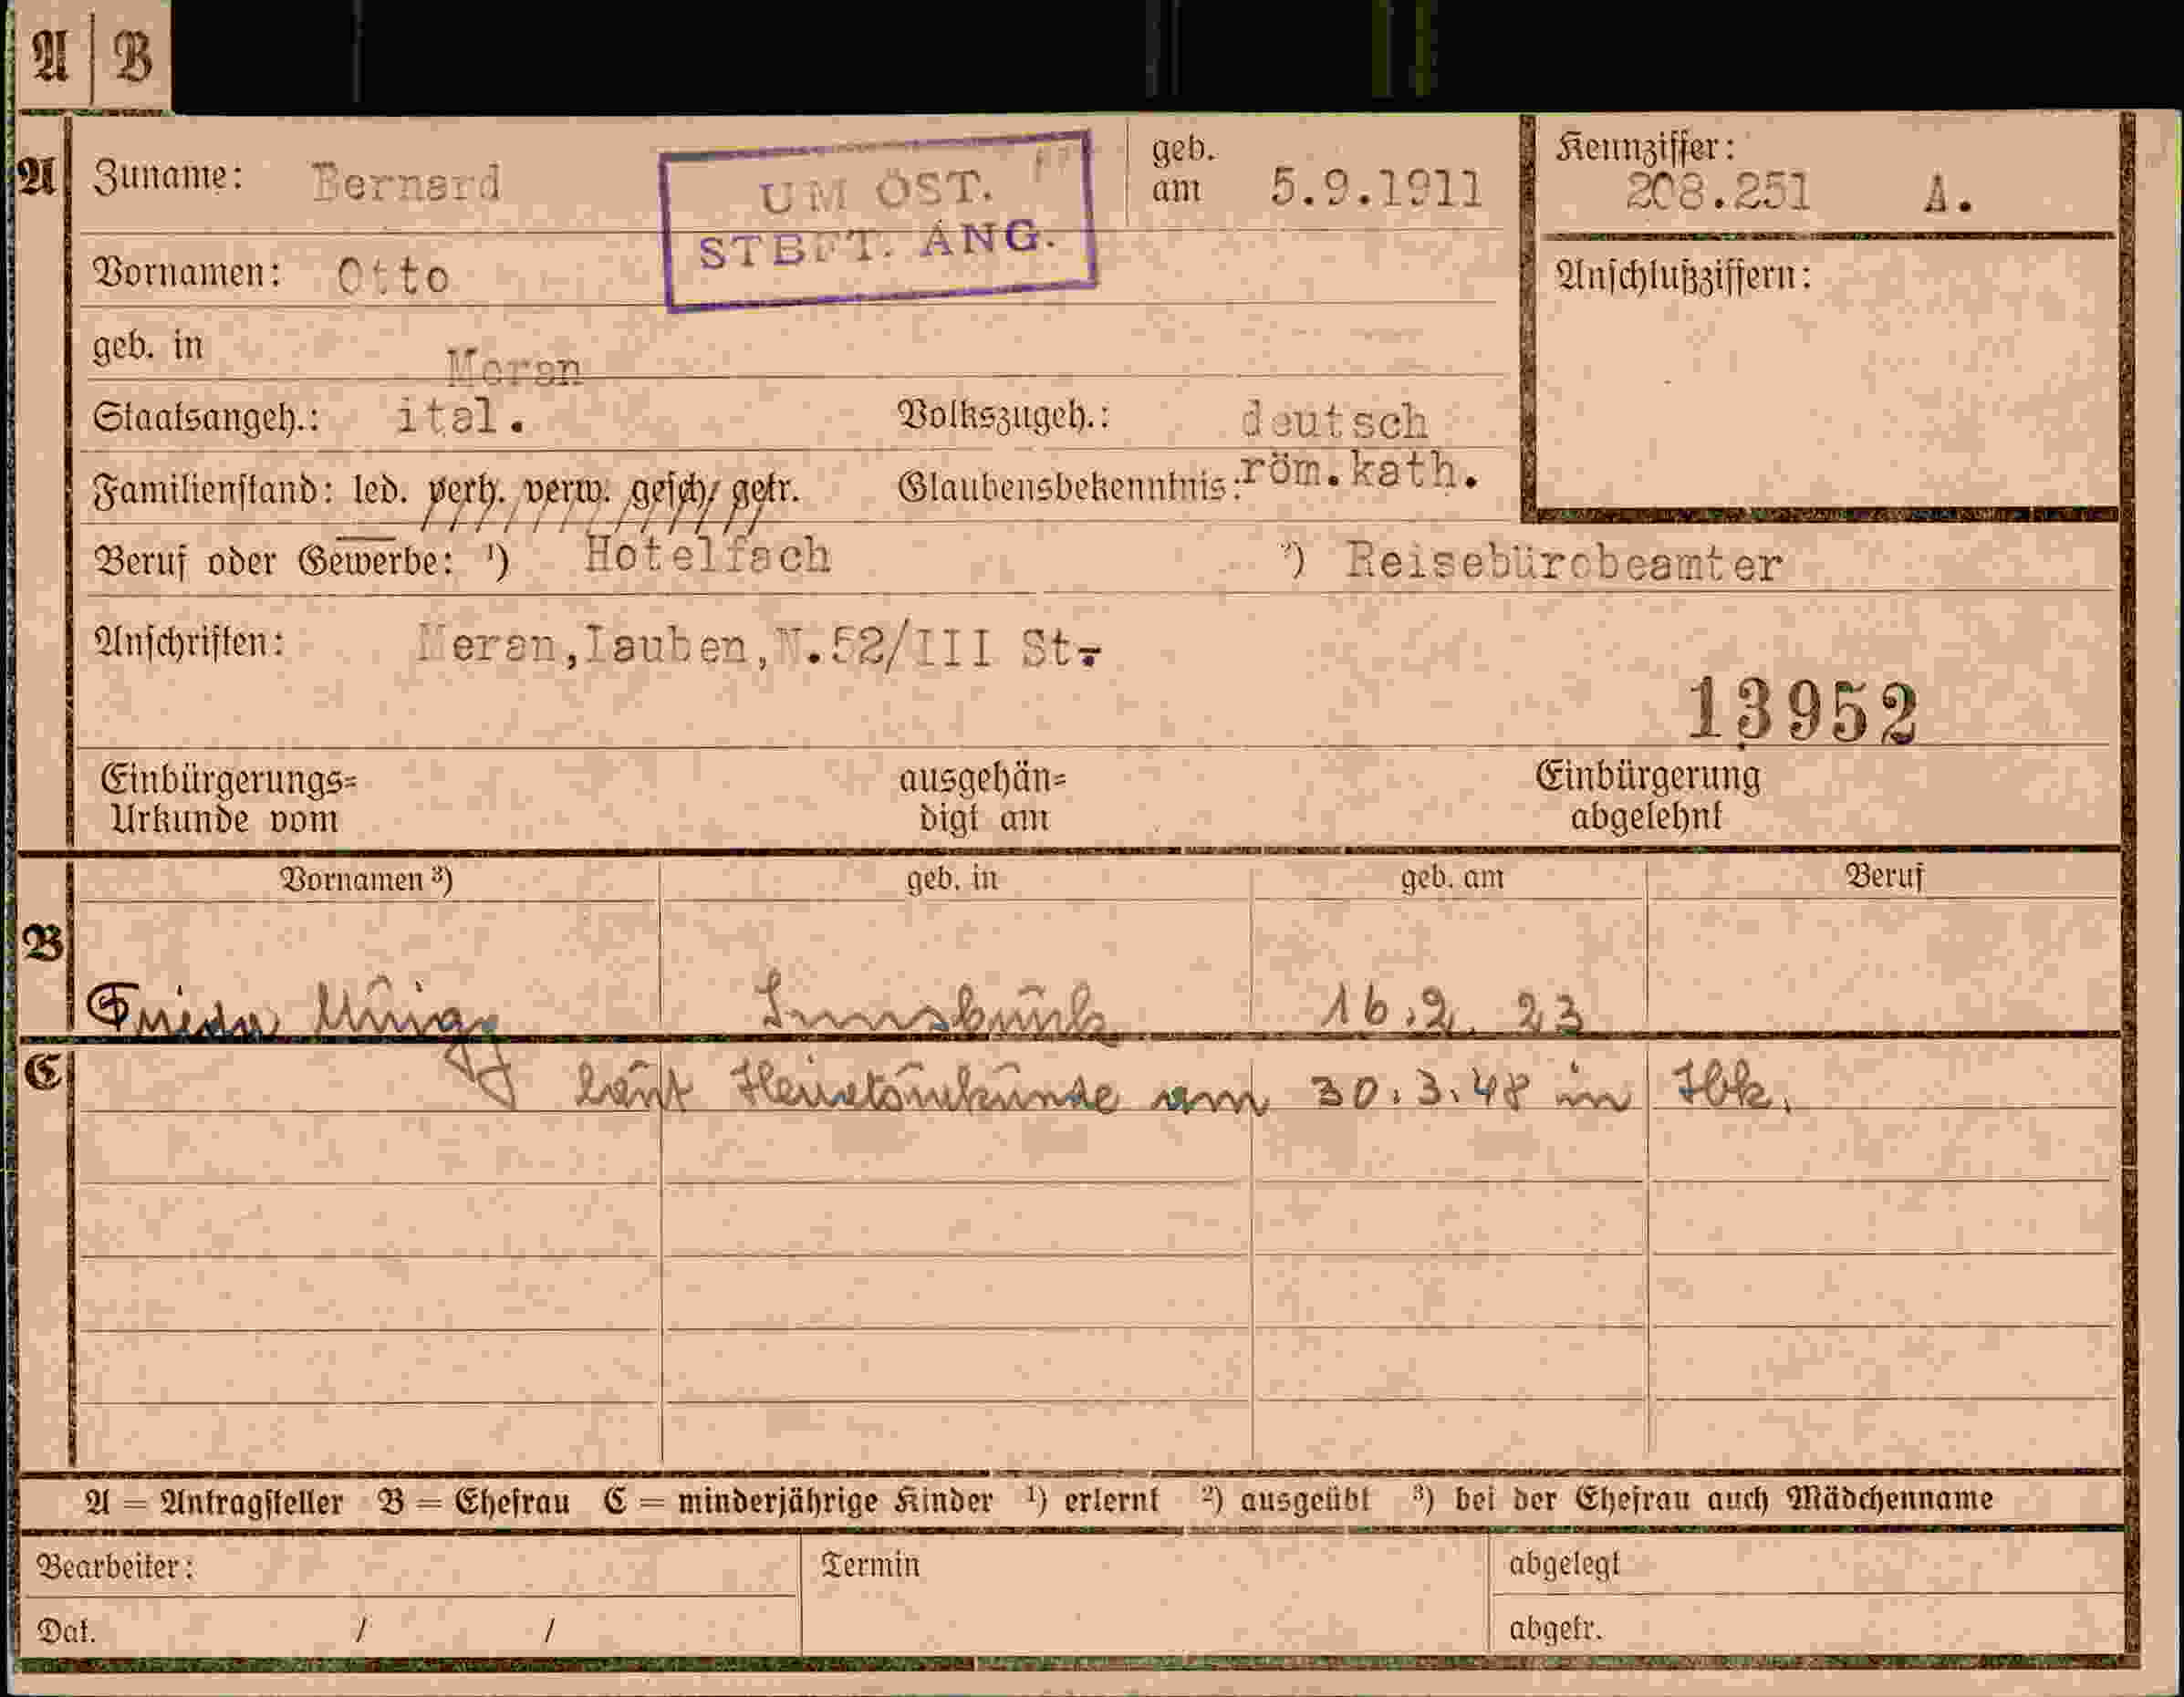 A | B
A Zuname: Bernard UM ÖST. STBFT. ANG. geb. am 5.9.1911 Kennziffer: 208.251 A.
Vornamen: Otto Anschlußziffern:
geb. in Meran
Staatsangeh.: ital. Volkszugeh.: deutsch
Familienstand: led. verh. verw. gesch. getr. Glaubensbekenntnis: röm.kath.
Beruf oder Gewerbe: ¹) Hotelfach ²) Reisebürobeamter
Anschriften: Meran,Lauben,N.52/III St.
13952
Einbürgerungs= ausgehän= Einbürgerung
Urkunde vom digt am abgelehnt
Vornamen ³) geb. in geb. am Beruf
B
Frieda Innsbruck 16.2.23
C laut Heiratsurkunde am 30.3.48 in Ibk.
A = Antragsteller B = Ehefrau C = minderjährige Kinder ¹) erlernt ²) ausgeübt ³) bei der Ehefrau auch Mädchenname
Bearbeiter: Termin abgelegt
Dat. / / abgetr.